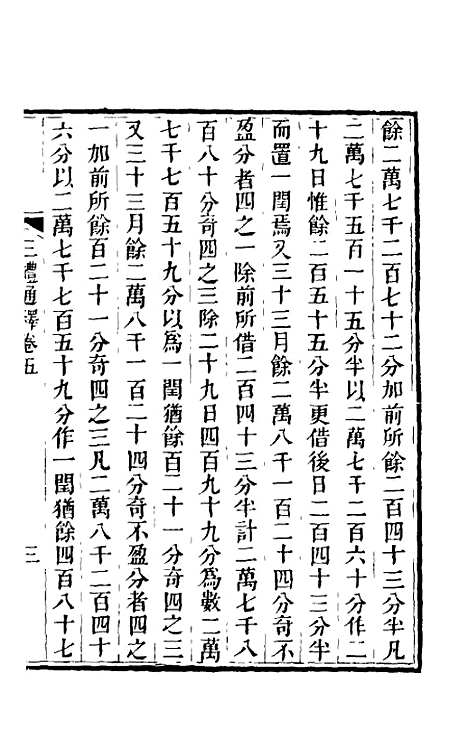 餘二萬七千二百七十二分加前所餘二百四十三分半凡
二萬七千五百一十五分半以二萬七千二百六十分作二
十九日惟餘二百五十五分半更借後日二百四十三分半
而置一閏焉又三十三月餘二萬八千一百二十四分奇不
盈分者四之一除前所借二百四十三分半計二萬七千八
百八十分奇四之三除二十九日四百九十九分爲數二萬
七千七百五十九分以爲一閏猶餘百二十一分奇四之三
又三十三月餘二萬八千一百二十四分奇不盈分者四之
一加前所餘百二十一分奇四之三凡二萬八千二百四十
六分以二萬七千七百五十九分作一閏猶餘四百八十七
三禮通釋卷五
三